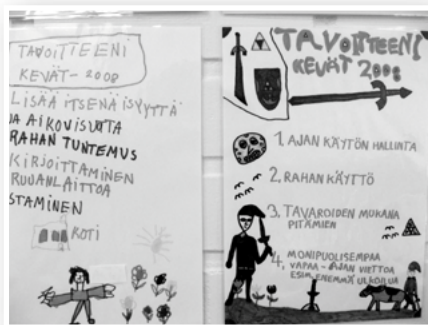 TAVOITTEENI
KEVÄT-2008
LISÄÄ ITSENÄISYYTTÄ
RAHAN TUNTEMUS
KIRJOITTAMINEN
RUUANLAITTOA
STAMINEN
KOTI
TAVOITTEENI
KEVÄT 2008
1. AJAN KÄYTÖN HALLINTA
2. RAHAN KÄYTTÖ
3. TAVAROIDEN MUKANA
PITÄMIEN
4. MONIPUOLISEMPAA
VAPAA-AJAN VIETTOA
ESIM. ENEMMÄ ULKOILUA